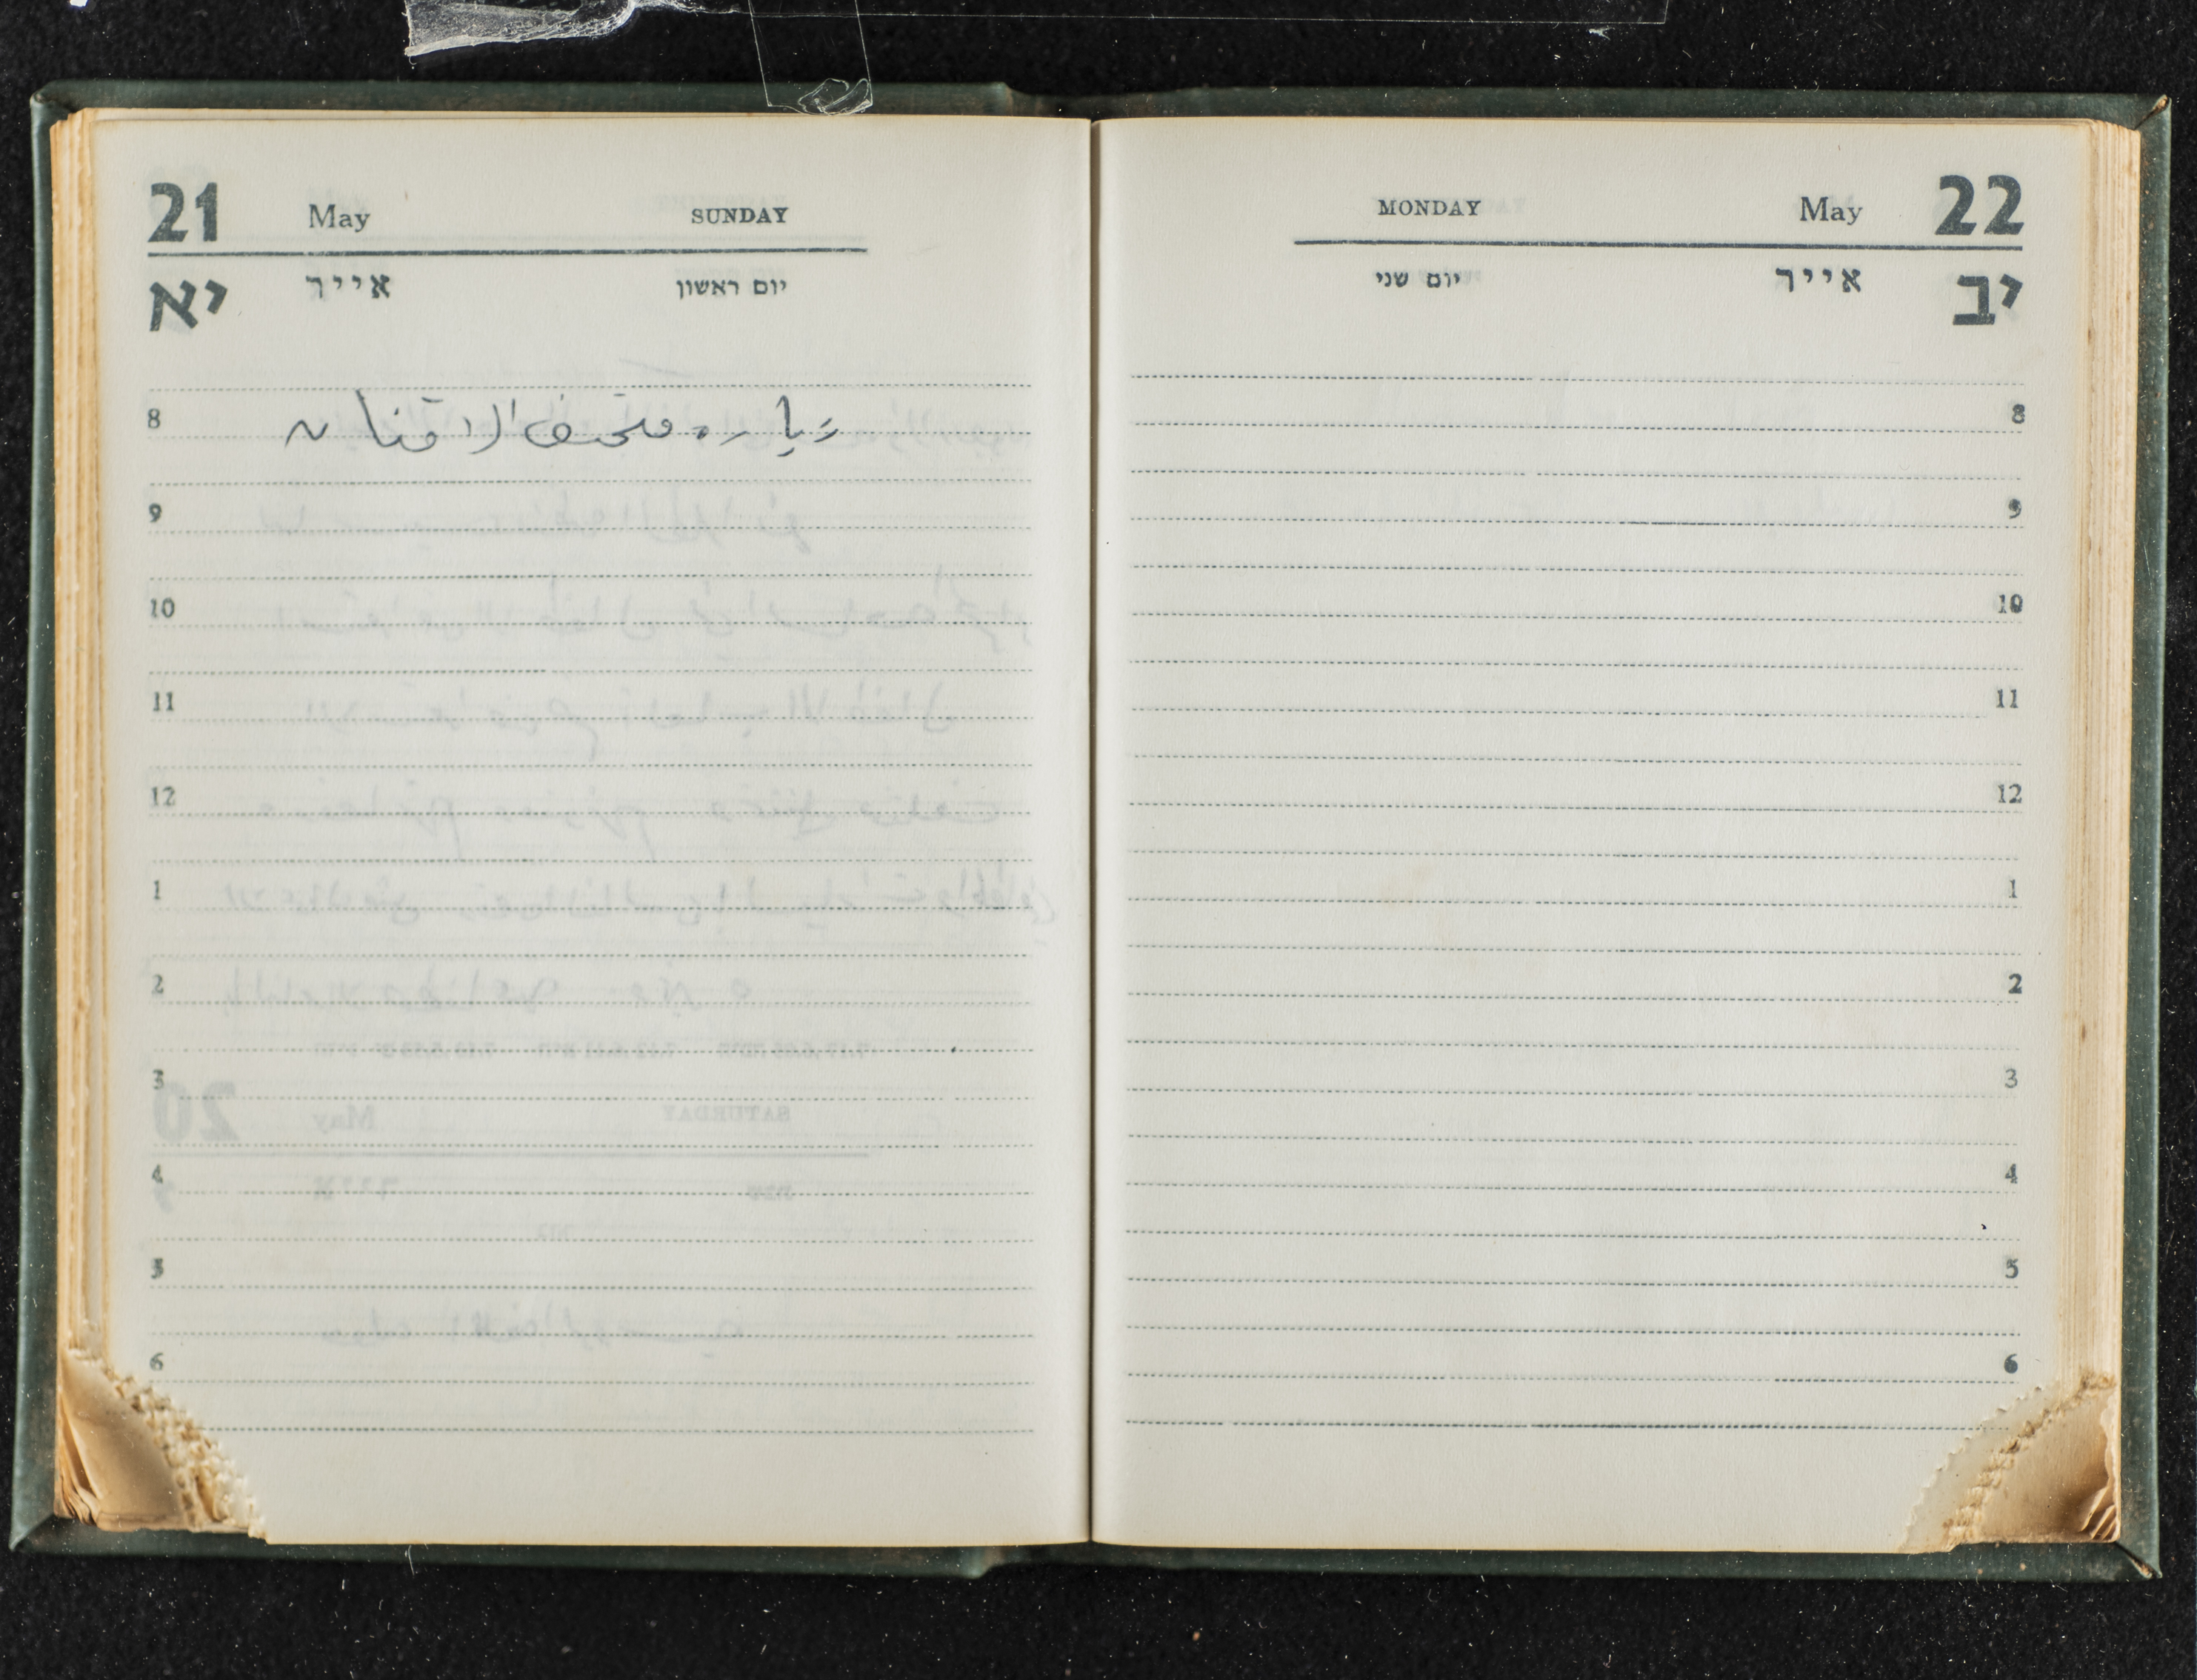 21 May SUNDAY
יא אייר יום ראשון
8 زياره متحف
9
10
11
12
1
2
3
4
5
6
MONDAY May 22
יום שני אייר יב
8
9
10
11
12
1
2
3
4
5
6